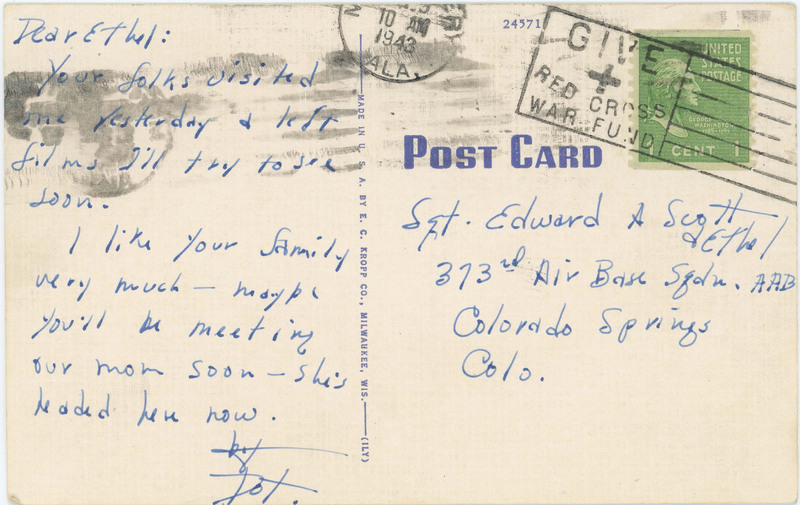 Dear Ethel:
Your folks visited
me yesterday & left
films I'll try to see
soon.
I like your family
very much - maybe
you'll be meeting
our mom soon - she's
headed here now.
by
Jot.
10 AM
1943
ALA.
24571
GIVE
RED CROSS
WAR FUND
UNITED
STATES
POSTAGE
GEORGE
WASHINGTON
1789-1797
CENT 1
MADE IN U. S. A. BY E. C. KROPP CO., MILWAUKEE, WIS. (ILY)
POST CARD
Sgt. Edward A Scott
& Ethel
373rd Air Base Sqdn. AAB
Colorado Springs
Colo.